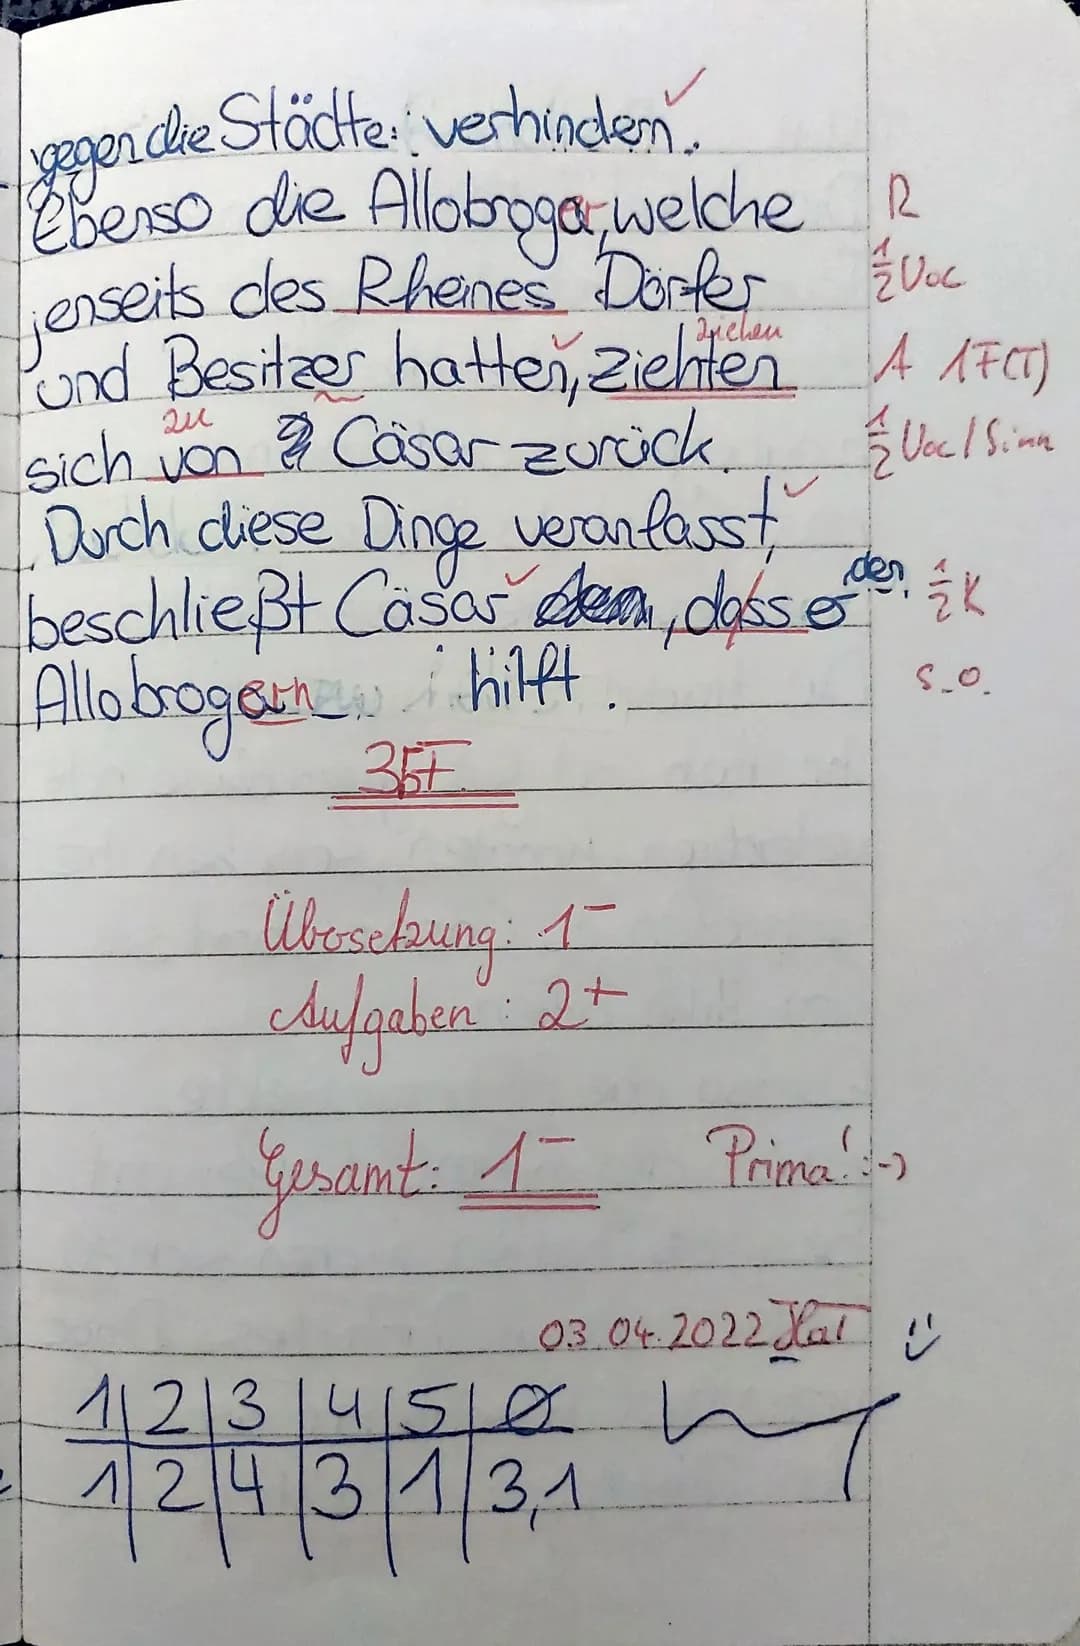 gegen die Städte verhindern.
Ebenso die Allobroger, welche R
jenseits des Rheines Dörfer ½ Voc
ziehen
und Besitzer hatten, ziehten A 1F(T)
zu
sich von Cäsar zurück. ½ Voc/Sinn
Durch diese Dinge veranlasst,
beschließt Cäsar, dass er den ½K
Allobrogern hilft. s.o.
3,5F
Übersetzung: 1-
Aufgaben: 2+
Gesamt: 1- Prima! :-)
03.04.2022
1 | 2 | 3 | 4 | 5 | Ø
1 | 2 | 4 | 3 | 1 | 3,1